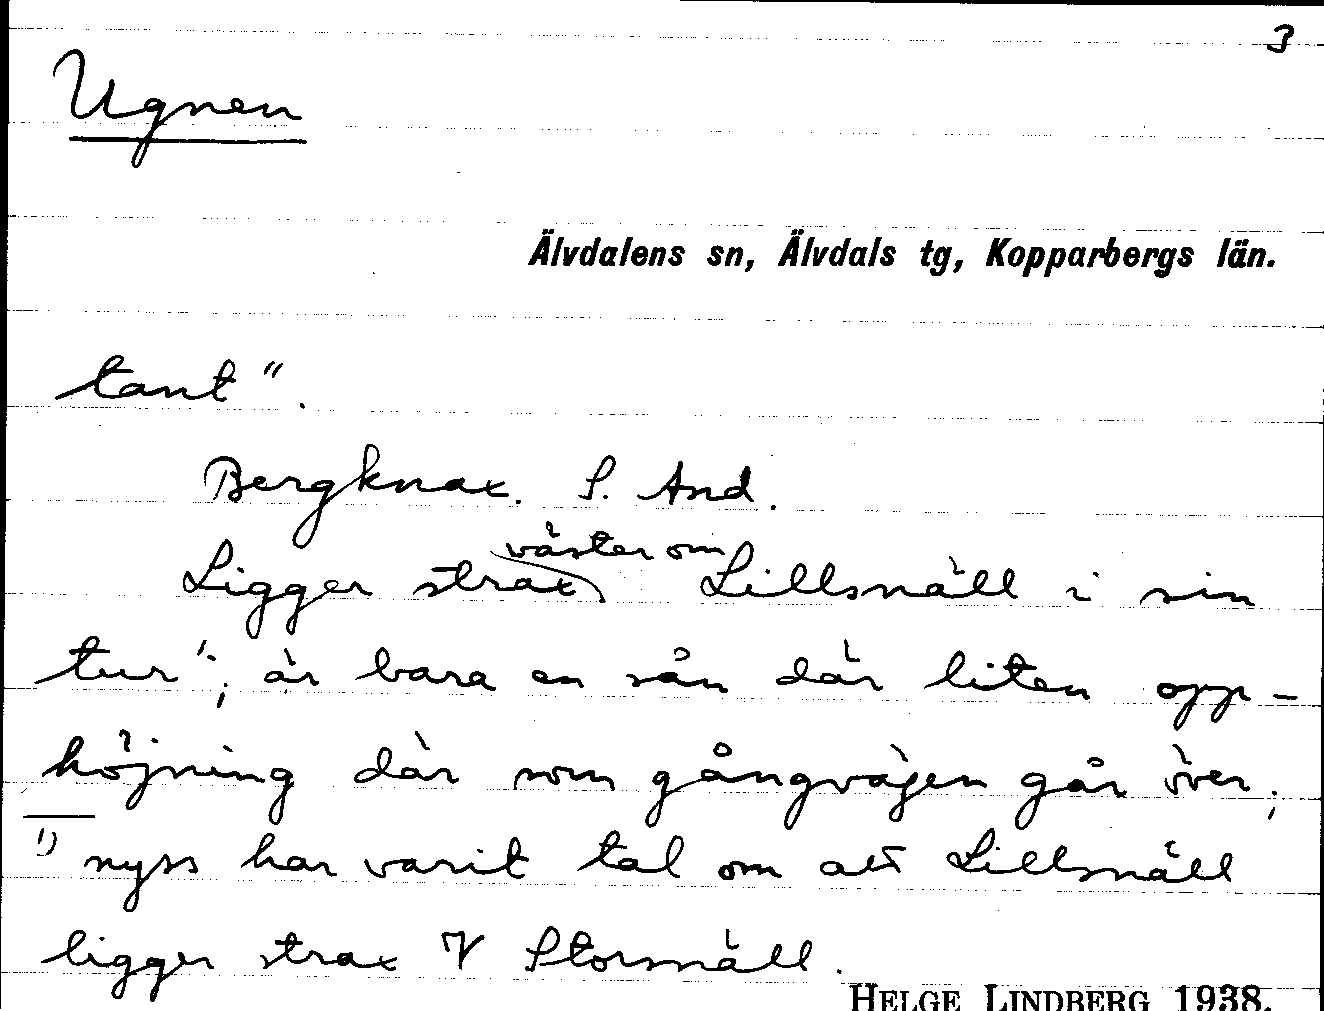 3
Ugnen
Älvdalens sn, Älvdals tg, Kopparbergs län.
tant".
Bergknax. S. And.
väster om
Ligger strax Lillsnäll i sin
tur"; är bara en sån där liten opp-
höjning där som gångvägen går över;
1) nyss har varit tal om att Lillsnäll
ligger strax V Storsnäll.
HELGE LINDBERG 1938.